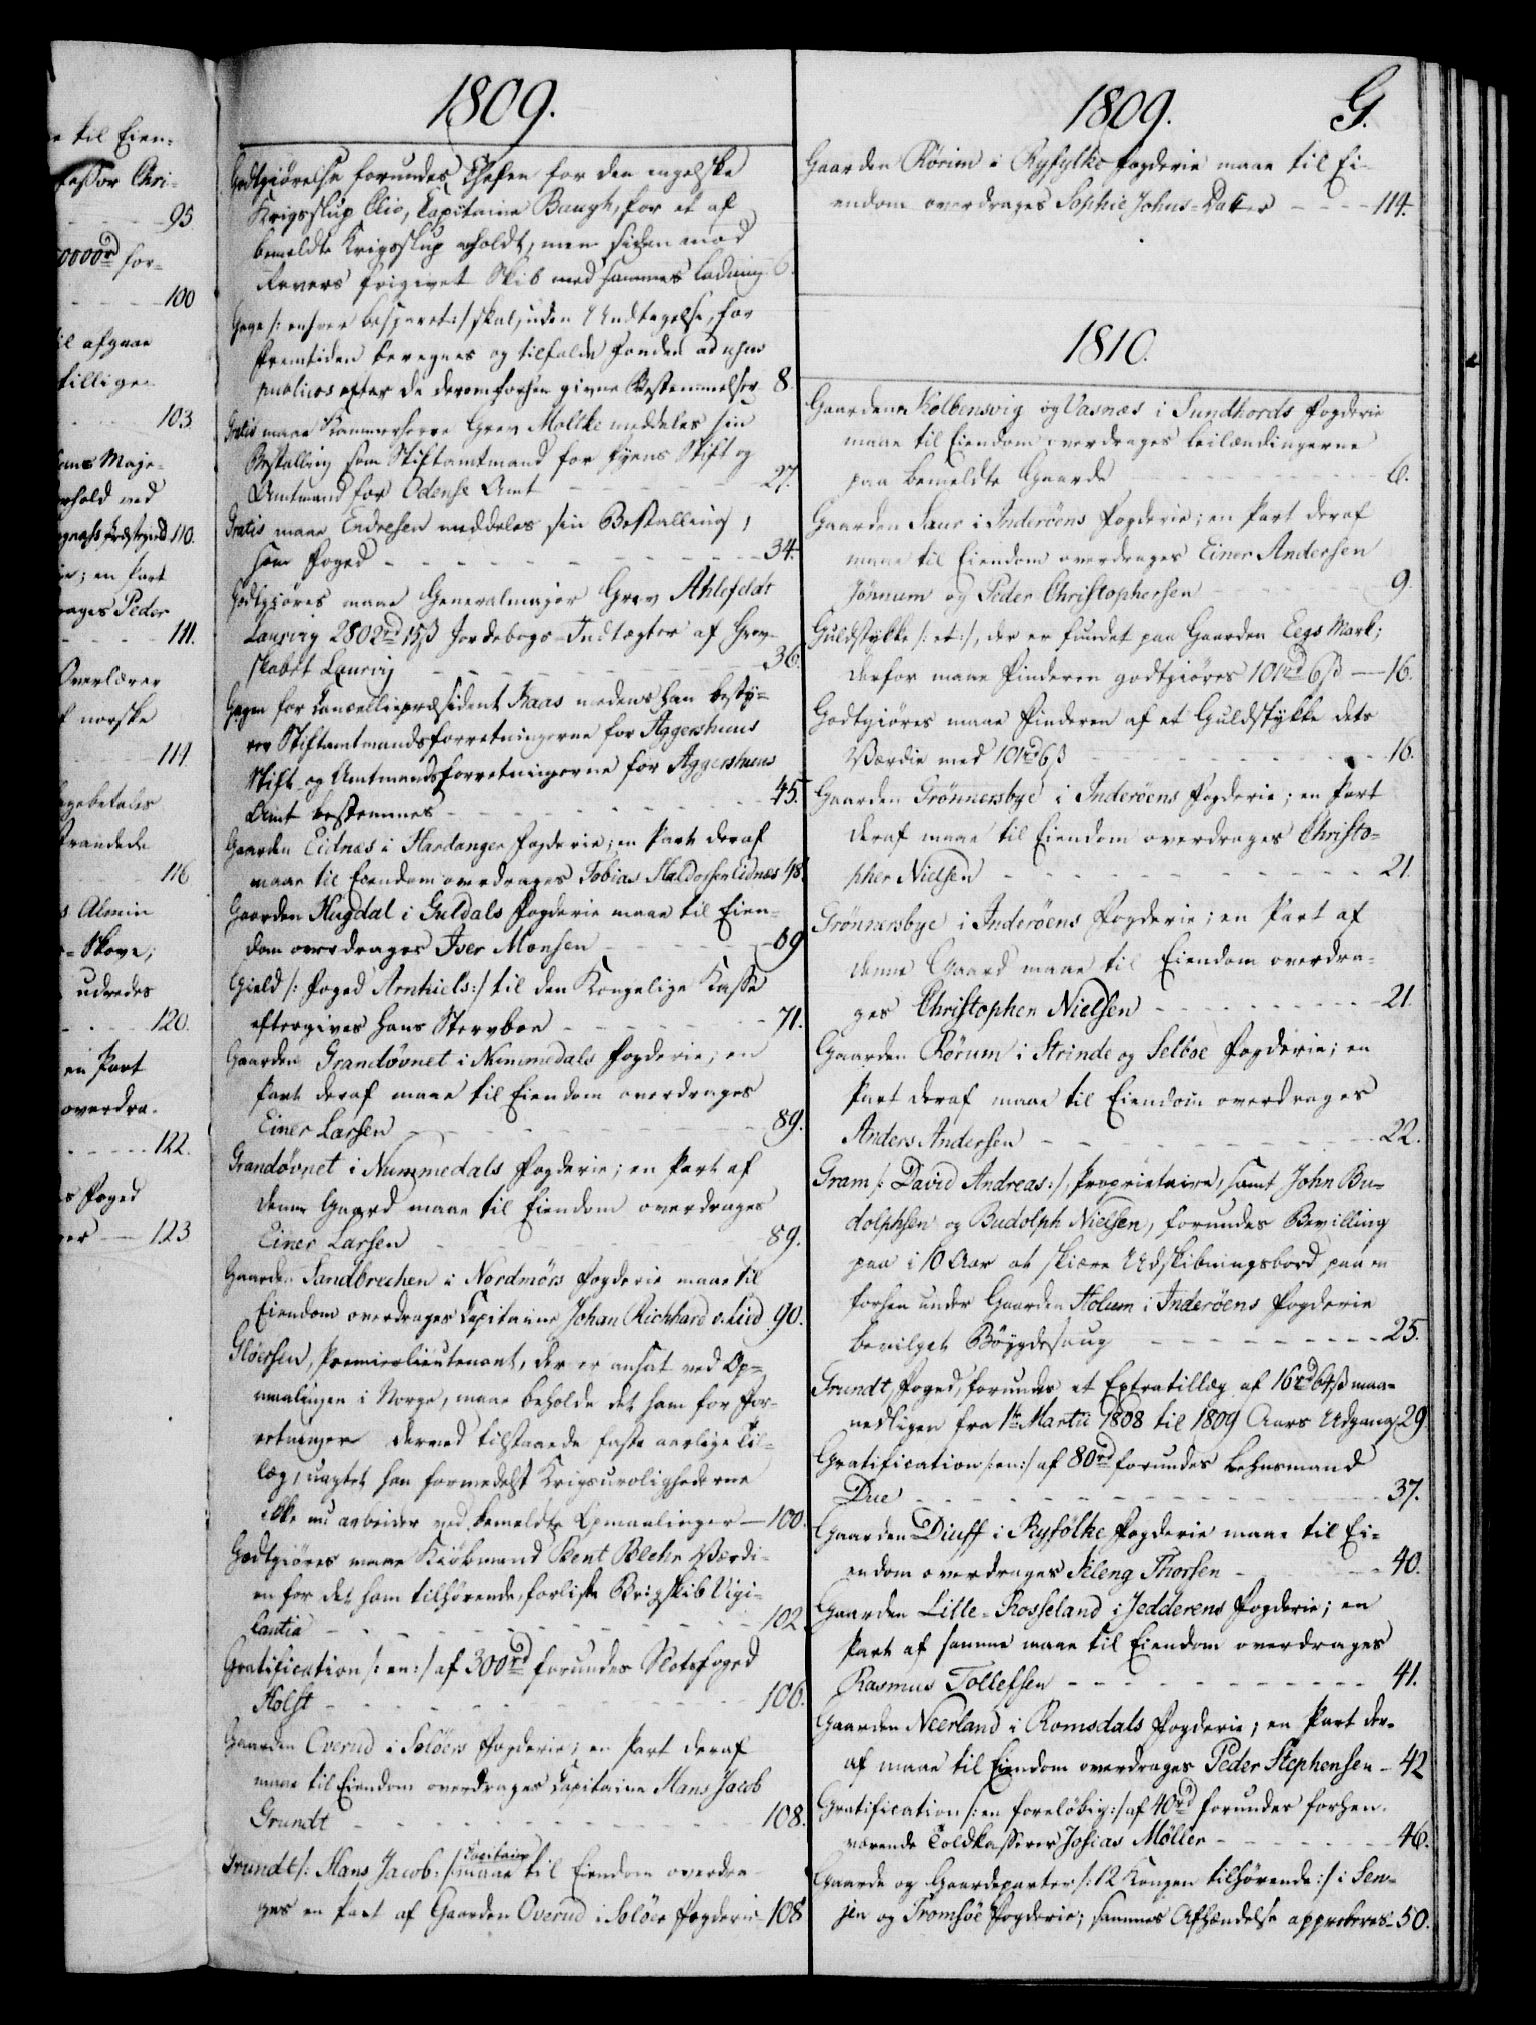 e til Eien-
fessor Chri-
95.
0000rd for-
100
til afgaae
tillige
103.
Hans Maje-
110.
en Part
rages Peder
111.
Overlærer
f norske
114
gebetales
Strandede
116
s Almin
- Skove;
udredes
120.
en Part
overdra-
122.
s Foged
ger — 123
1809.
Godtgiørelse forundes Chefen for den engelske
Krigsslup Clio, Capitaine Baugh, for et af
bemeldte Krigsslup opholdt, men siden mod
Revers frigivet Skib med sammes Ladning 6.
Gage /: enhver besparet :/ skal, uden Undtagelse, for
Fremtiden beregnes og tilfalde Fonden ad usus
publicos efter de derom forhen givne Bestemmelser 8.
Gratis maae Kammerherre Grev Moltke meddeles sin
Bestalling som Stiftamtmand for Fyens Stift og
Amtmand for Odense Amt 27.
Gratis maae Endresen meddeles sin Bestalling,
som Foged 34.
Godtgiøres maae Generalmajor Grev Ahlefeldt
Laurvig 2802rd 15ß Jordebogs-Indtægter af Grev-
skabet Laurvig 36.
Gagen for Cancelliepræsident Kaas medens han besty-
rer Stiftamtmandsforretningerne for Aggershuus
Stift og Amtmandsforretningerne for Aggershuus
Amt bestemmes 45.
Gaarden Eidnæs i Hardanger Fogderie; en Part deraf
maae til Eiendom overdrages Tobias Haldorsen Eidnæs 48.
Gaarden Hugdal i Guldals Fogderie maae til Eien-
dom overdrages Iver Monsen 69
Gield /: Foged Arnhiels :/ til den Kongelige Kasse
eftergives hans Stervboe 71.
Gaarden Grandøvnet i Nummedals Fogderie; en
Part deraf maae til Eiendom overdrages
Einer Larsen 89.
Grandøvnet i Nummedals Fogderie; en Part af
denne Gaard maae til Eiendom overdrages
Einer Larsen 89.
Gaarden Sandbrechen i Nordmørs Fogderie maae til
Eiendom overdrages Capitaine Johan Richhard v. Lied 90.
Gløersen, Premierlieutenant, der er ansat ved Op-
maalingen i Norge, maae beholde det ham for For-
retninger derved tilstaaede faste aarlige Til-
læg, uagtet han formedelst Krigsurolighederne
ikke nu arbeider ved bemeldte Opmaalinger — 100.
Godtgiøres maae Kiøbmand Bent Blehr Værdi-
en for det ham tilhørende, forliste Brigskib Vigi-
lantia 102
Gratification /: en :/ af 300rd forundes Slotsfoged
Holst 106.
Gaarden Overud i Soløers Fogderie; en Part deraf
maae til Eiendom overdrages Capitaine Hans Jacob
Grundt 108.
Capitaine
Grundt /: Hans Jacob :/ maae til Eiendom overdra-
ges en Part af Gaarden Overud i Soløer Fogderie 108
1809. G.
Gaarden Rørim i Ryfylke Fogderie maae til Ei-
endom overdrages Sophie Johns-Datter 114.
1810.
Gaardene Kolbensvig og Vasnæs i Sundhords Fogderie
maae til Eiendom overdrages Leilændingerne
paa bemeldte Gaarde 6.
Gaarden Saur i Inderøens Fogderie; en Part deraf
maae til Eiendom overdrages Einer Andersen
Jønnum og Peder Christophersen 9.
Guldstykke /: et :/, der er fundet paa Gaarden Eegs Mark;
derfor maae Finderen godtgiøres 101rd 6ß — 16.
Godtgiøres maae Finderen af et Guldstykke dets
Værdie med 101rd 6ß 16.
Gaarden Grønnersbye i Inderøens Fogderie; en Part
deraf maae til Eiendom overdrages Christo-
pher Nielsen 21.
Grønnersbye i Inderøens Fogderie; en Part af
denne Gaard maae til Eiendom overdra-
ges Christopher Nielsen 21.
Gaarden Rørum i Strinde og Selboe Fogderie; en
Part deraf maae til Eiendom overdrages
Anders Andersen 22.
Gram /: David Andreas :/, Proprietaire, samt John Bu-
dolphsen og Budolph Nielsen, forundes Bevilling
paa i 10 Aar at skiære Udskibningsbord paa en
forhen under Gaarden Holum i Inderøens Fogderie
bevilget Bøygdesaug 25.
Grundt, Foged, forundes et Extratillæg af 16rd 64ß maa-
nedligen fra 1te Martii 1808 til 1809 Aars Udgang 29
Gratification /: en :/ af 80rd forundes Lehnsmand
Due 37.
Gaarden Diuff i Ryfølke Fogderie maae til Ei-
endom overdrages Peleng Thorsen 40.
Gaarden Lille-Rosseland i Jedderens Fogderie; en
Part af samme maae til Eiendom overdrages
Rasmus Tollefsen 41.
Gaarden Neerland i Romsdals Fogderie; en Part der-
af maae til Eiendom overdrages Peder Stephensen - 42
Gratification /: en foreløbig :/ af 40rd forundes forhen-
værende Toldkasserer Josias Møller 46.
Gaarde og Gaardeparter /: 12 Kongen tilhørende :/ i Sen-
jen og Tromsøe Fogderie; sammes Afhændelse approberes - 50.